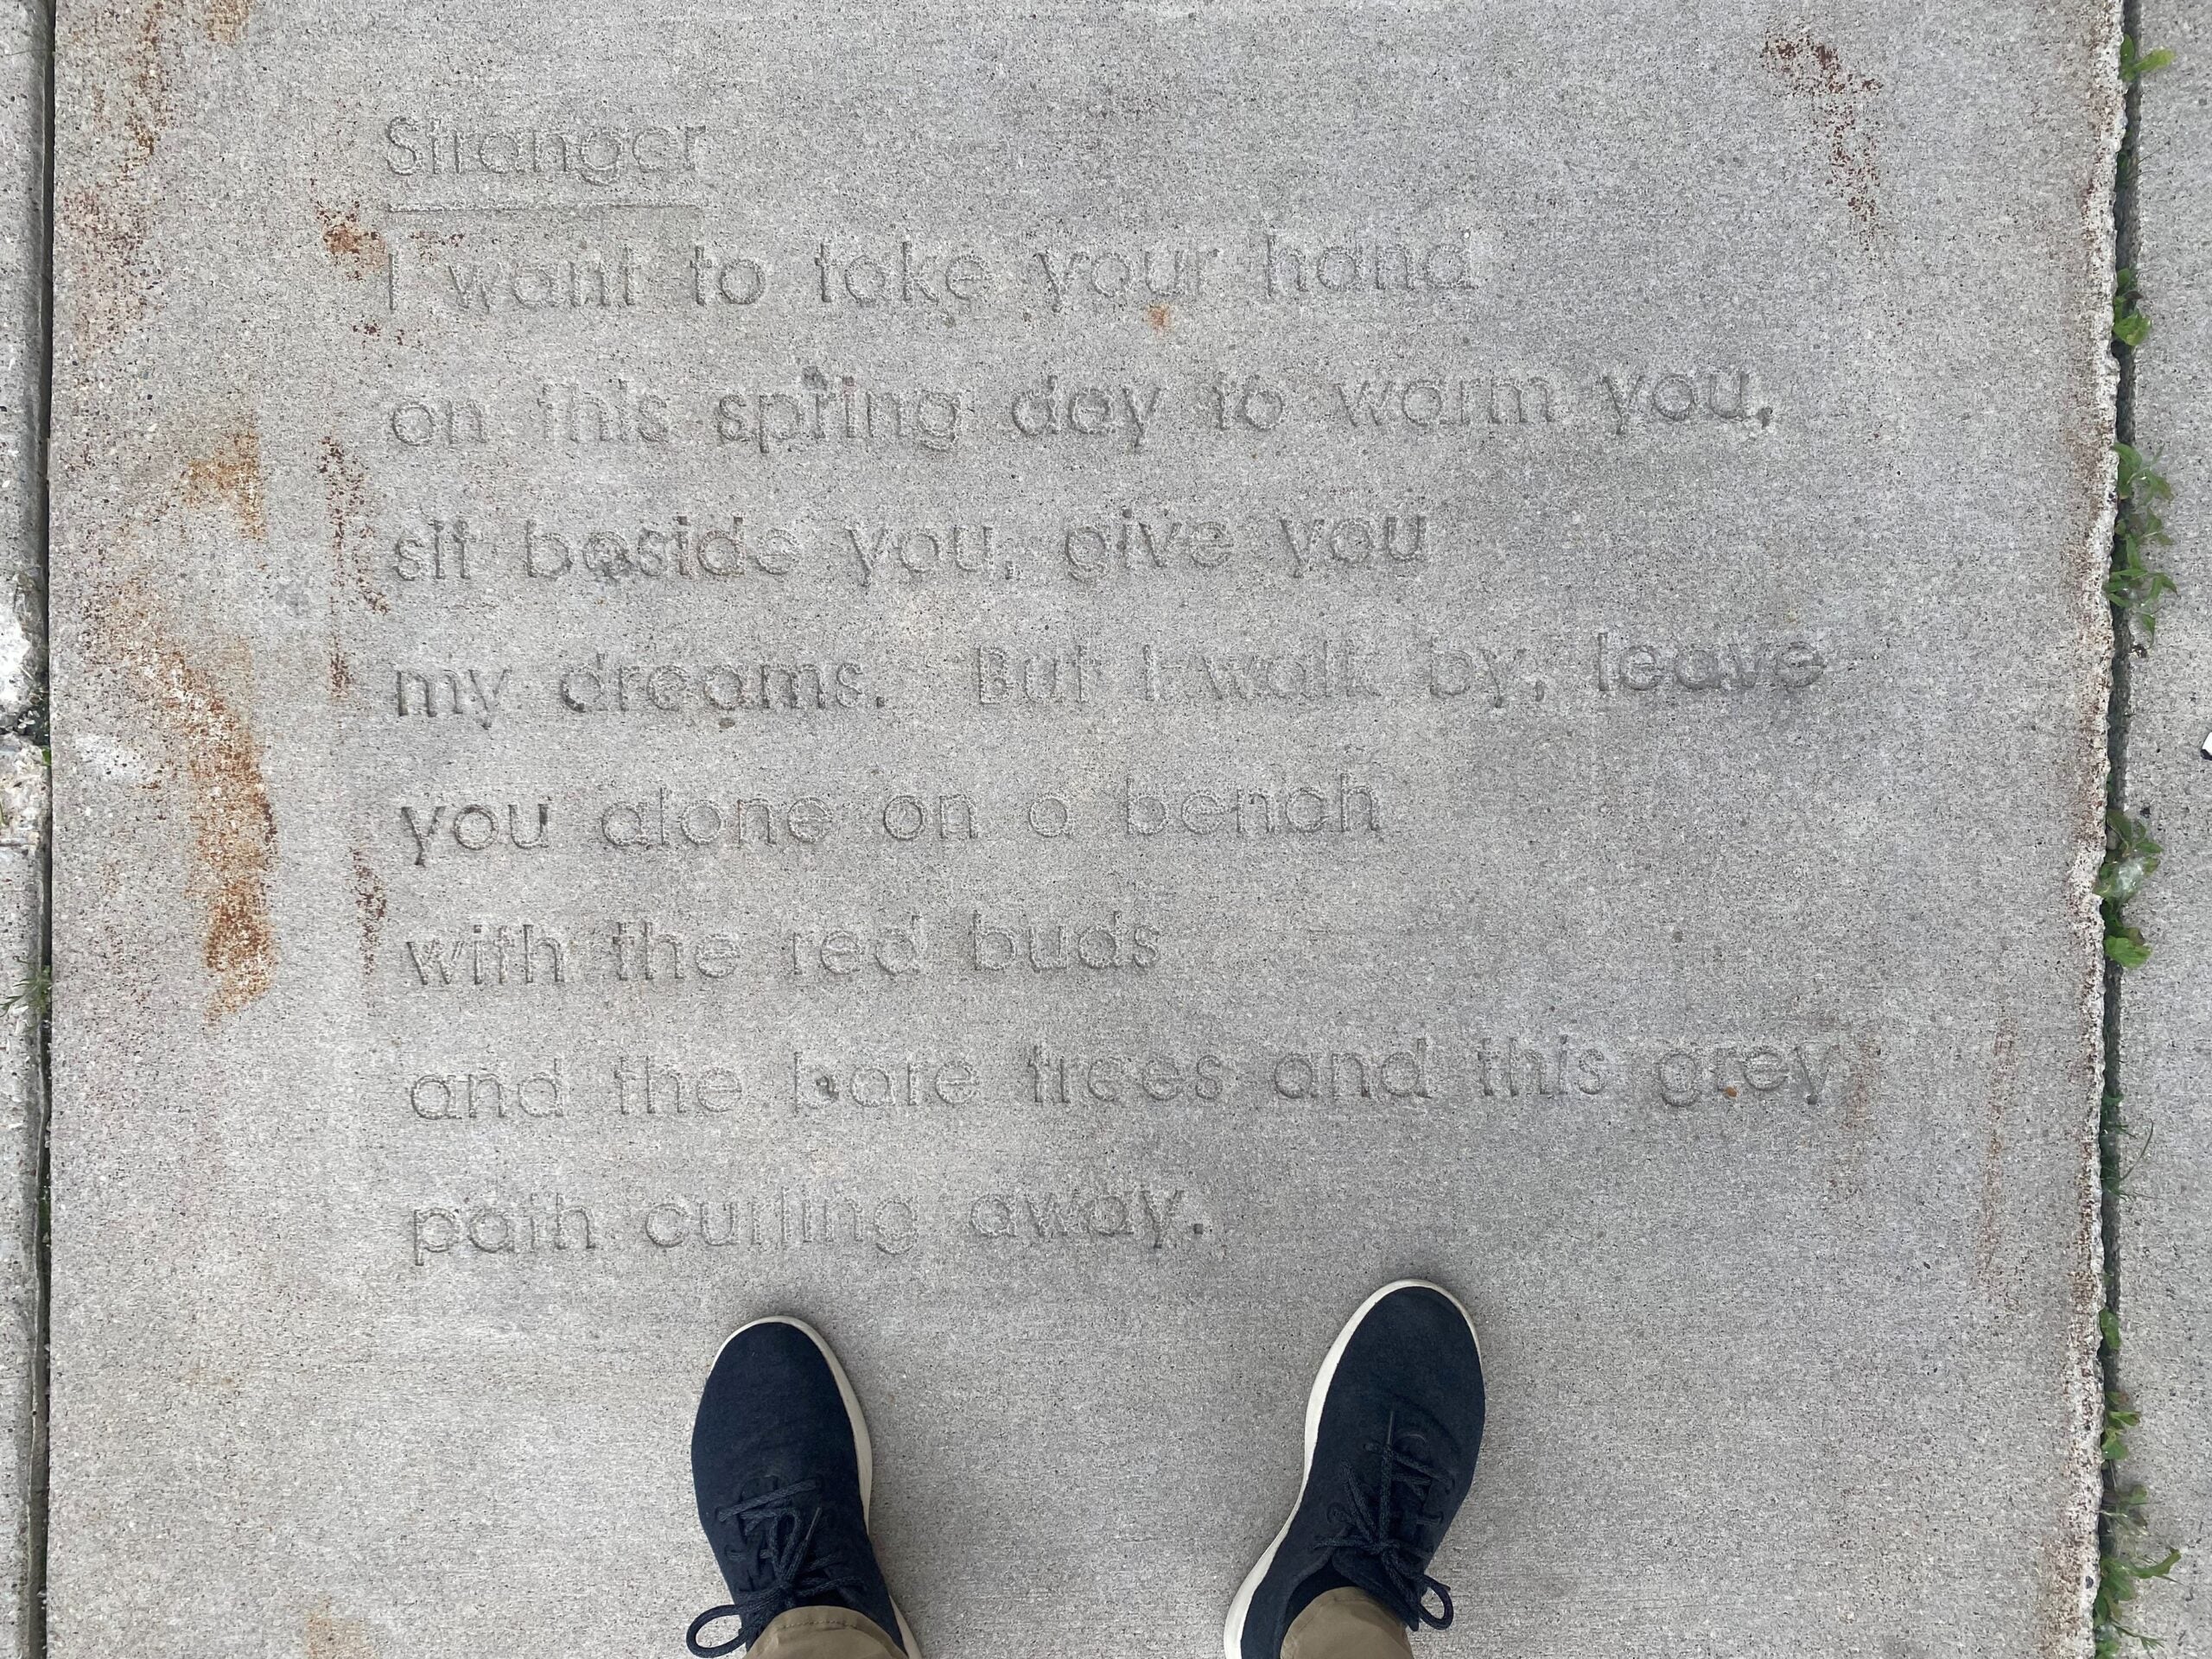 Stranger
I want to take your hand
on this spring day to warm you,
sit beside you, give you
my dreams. But I walk by, leave
you alone on a bench
with the red buds
and the bare trees and this grey
path curling away.